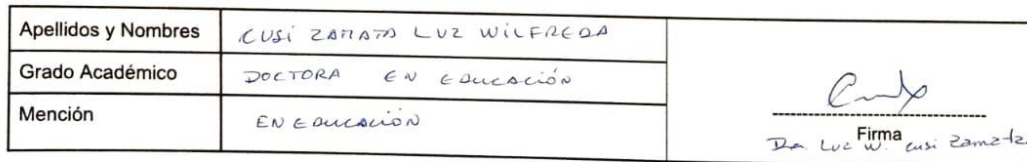 Apellidos y Nombres CUSI ZAMATA LUZ WILFREDA
Grado Académico DOCTORA EN EDUCACIÓN
Mención EN EDUCACIÓN
Firma
Dra Luz W. Cusi Zamata